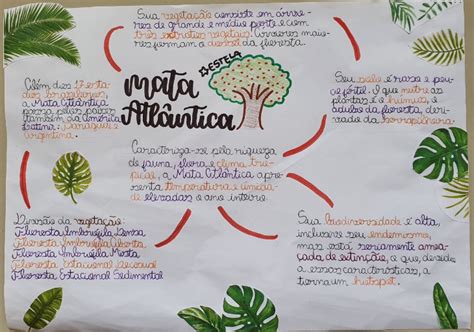 Sua vegetação consiste em árvo-
res de grande e médio porte e com
três extratos vegetais. Árvores maio-
res formam o dossel da floresta.
ESTELA
Mata
Atlântica
Além dos 17 esta-
dos brasileiros,
a Mata Atlântica
passa pelos países
também da América
Latina: Paraguai e
Argentina.
Seu solo é raso e pou-
co fértil. O que nutre as
plantas é o húmus, o
adubo da floresta, deri-
vado da serrapilheira.
Caracteriza-se pela riqueza
de fauna, flora e clima tro-
pical, a Mata Atlântica apre-
senta temperatura e umida-
de elevadas o ano inteiro.
Divisão da vegetação:
Floresta Ombrófila Densa
Floresta Ombrófila Aberta
Floresta Ombrófila Mista
Floresta Estacional Decidual
Floresta Estacional Semidecidual
Sua biodiversidade é alta,
inclusive seu endemismo,
mas está seriamente amea-
çada de extinção, o que, devido
a essas características, a
torna um hotspot.